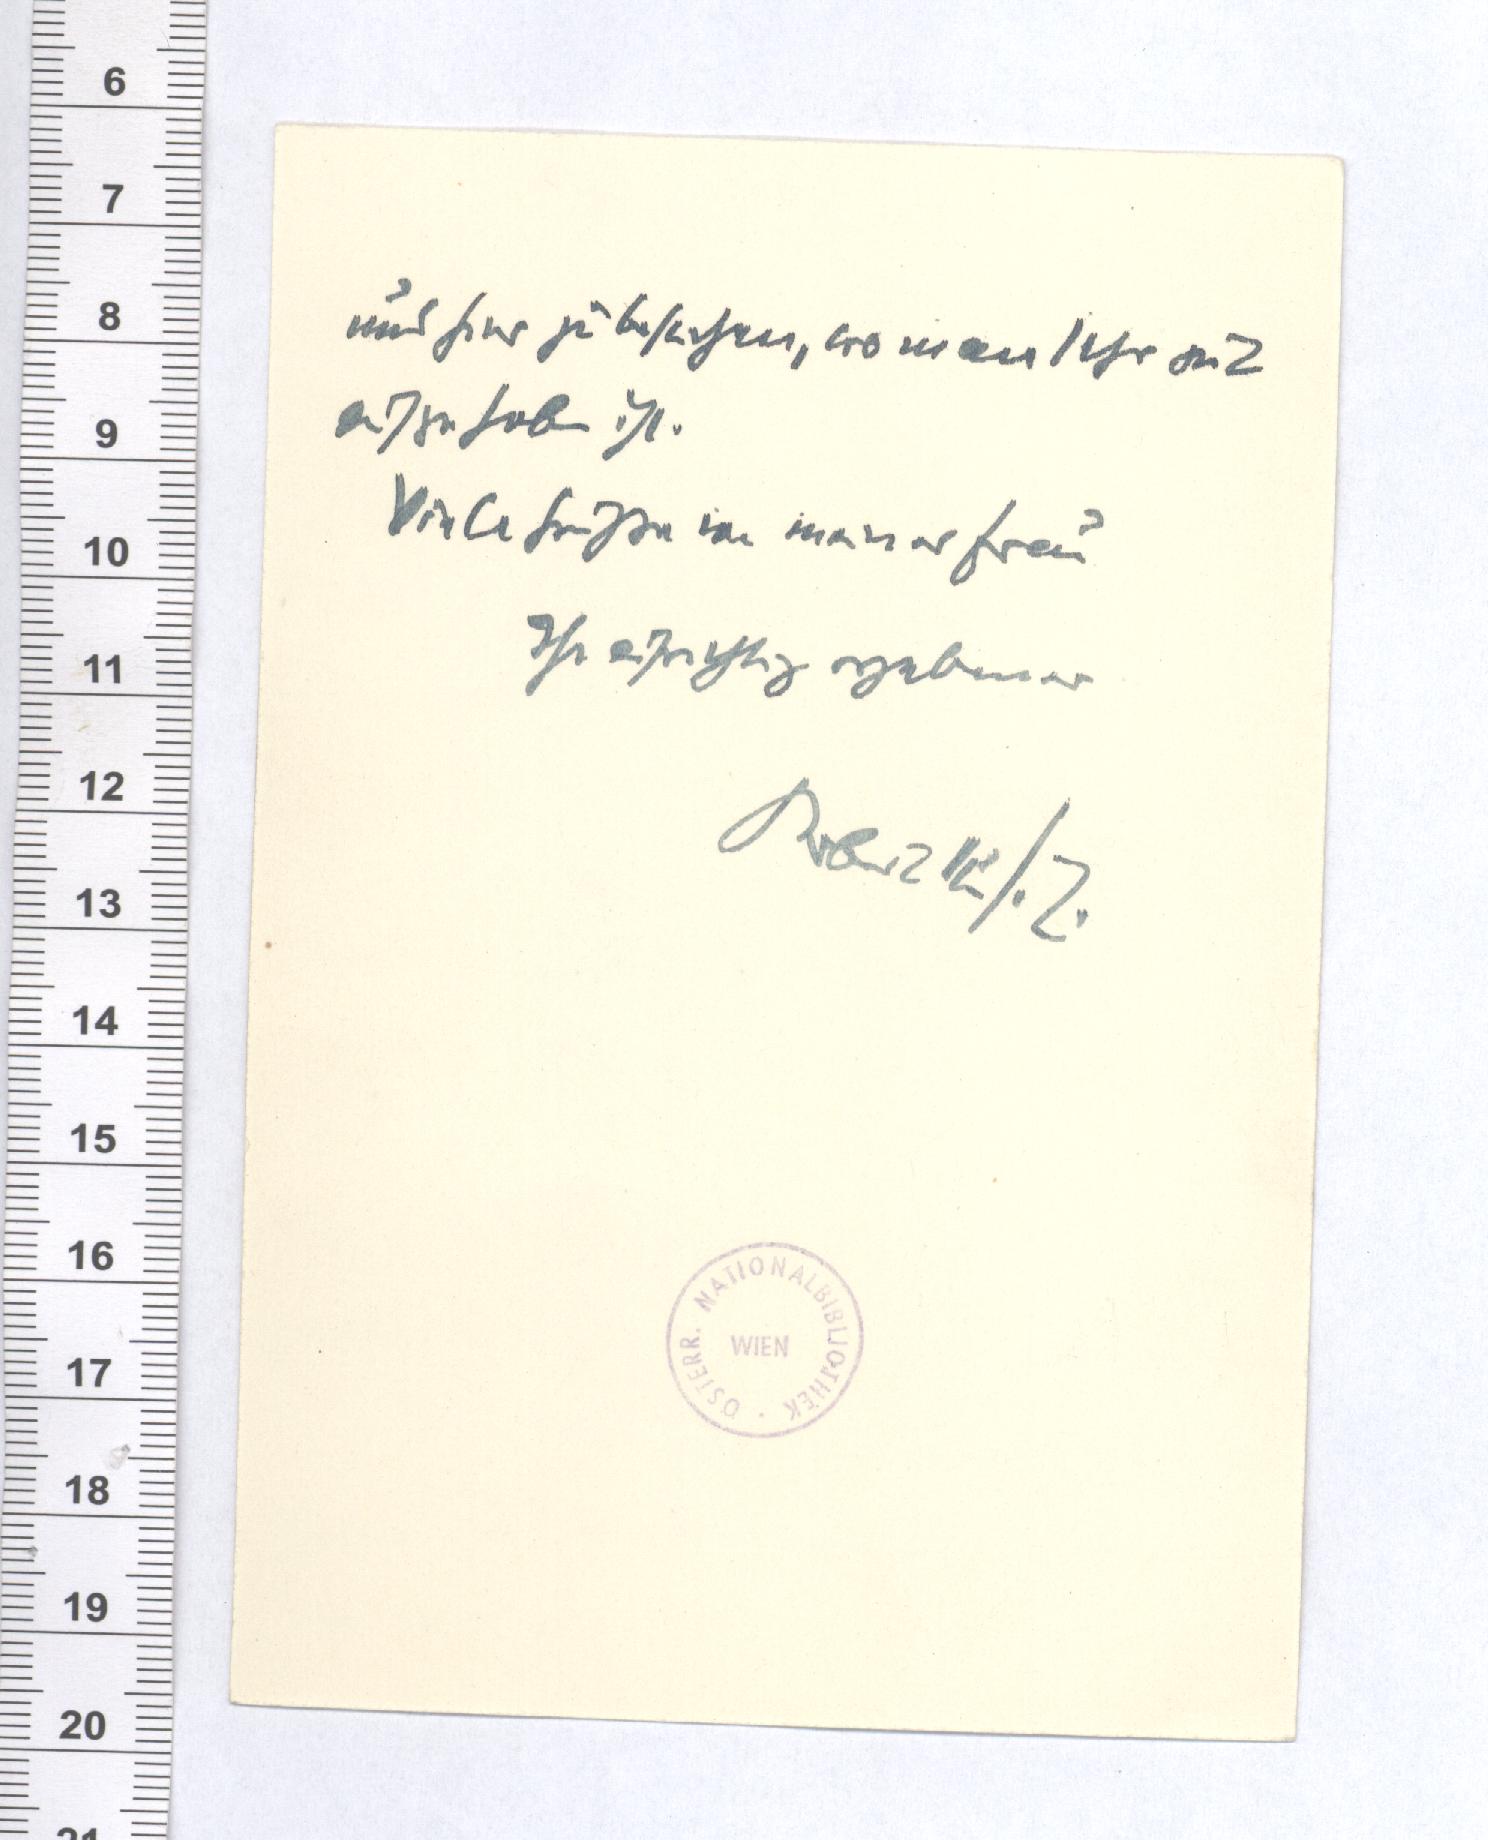 hier zu besuchen, wo man sehr gut
aufgehoben ist.
Viele Grüße von meiner Frau
Ihr aufrichtig ergebener
Robert Musil.
ÖSTERR. NATIONALBIBLIOTHEK ·
WIEN
6
7
8
9
10
11
12
13
14
15
16
17
18
19
20
21